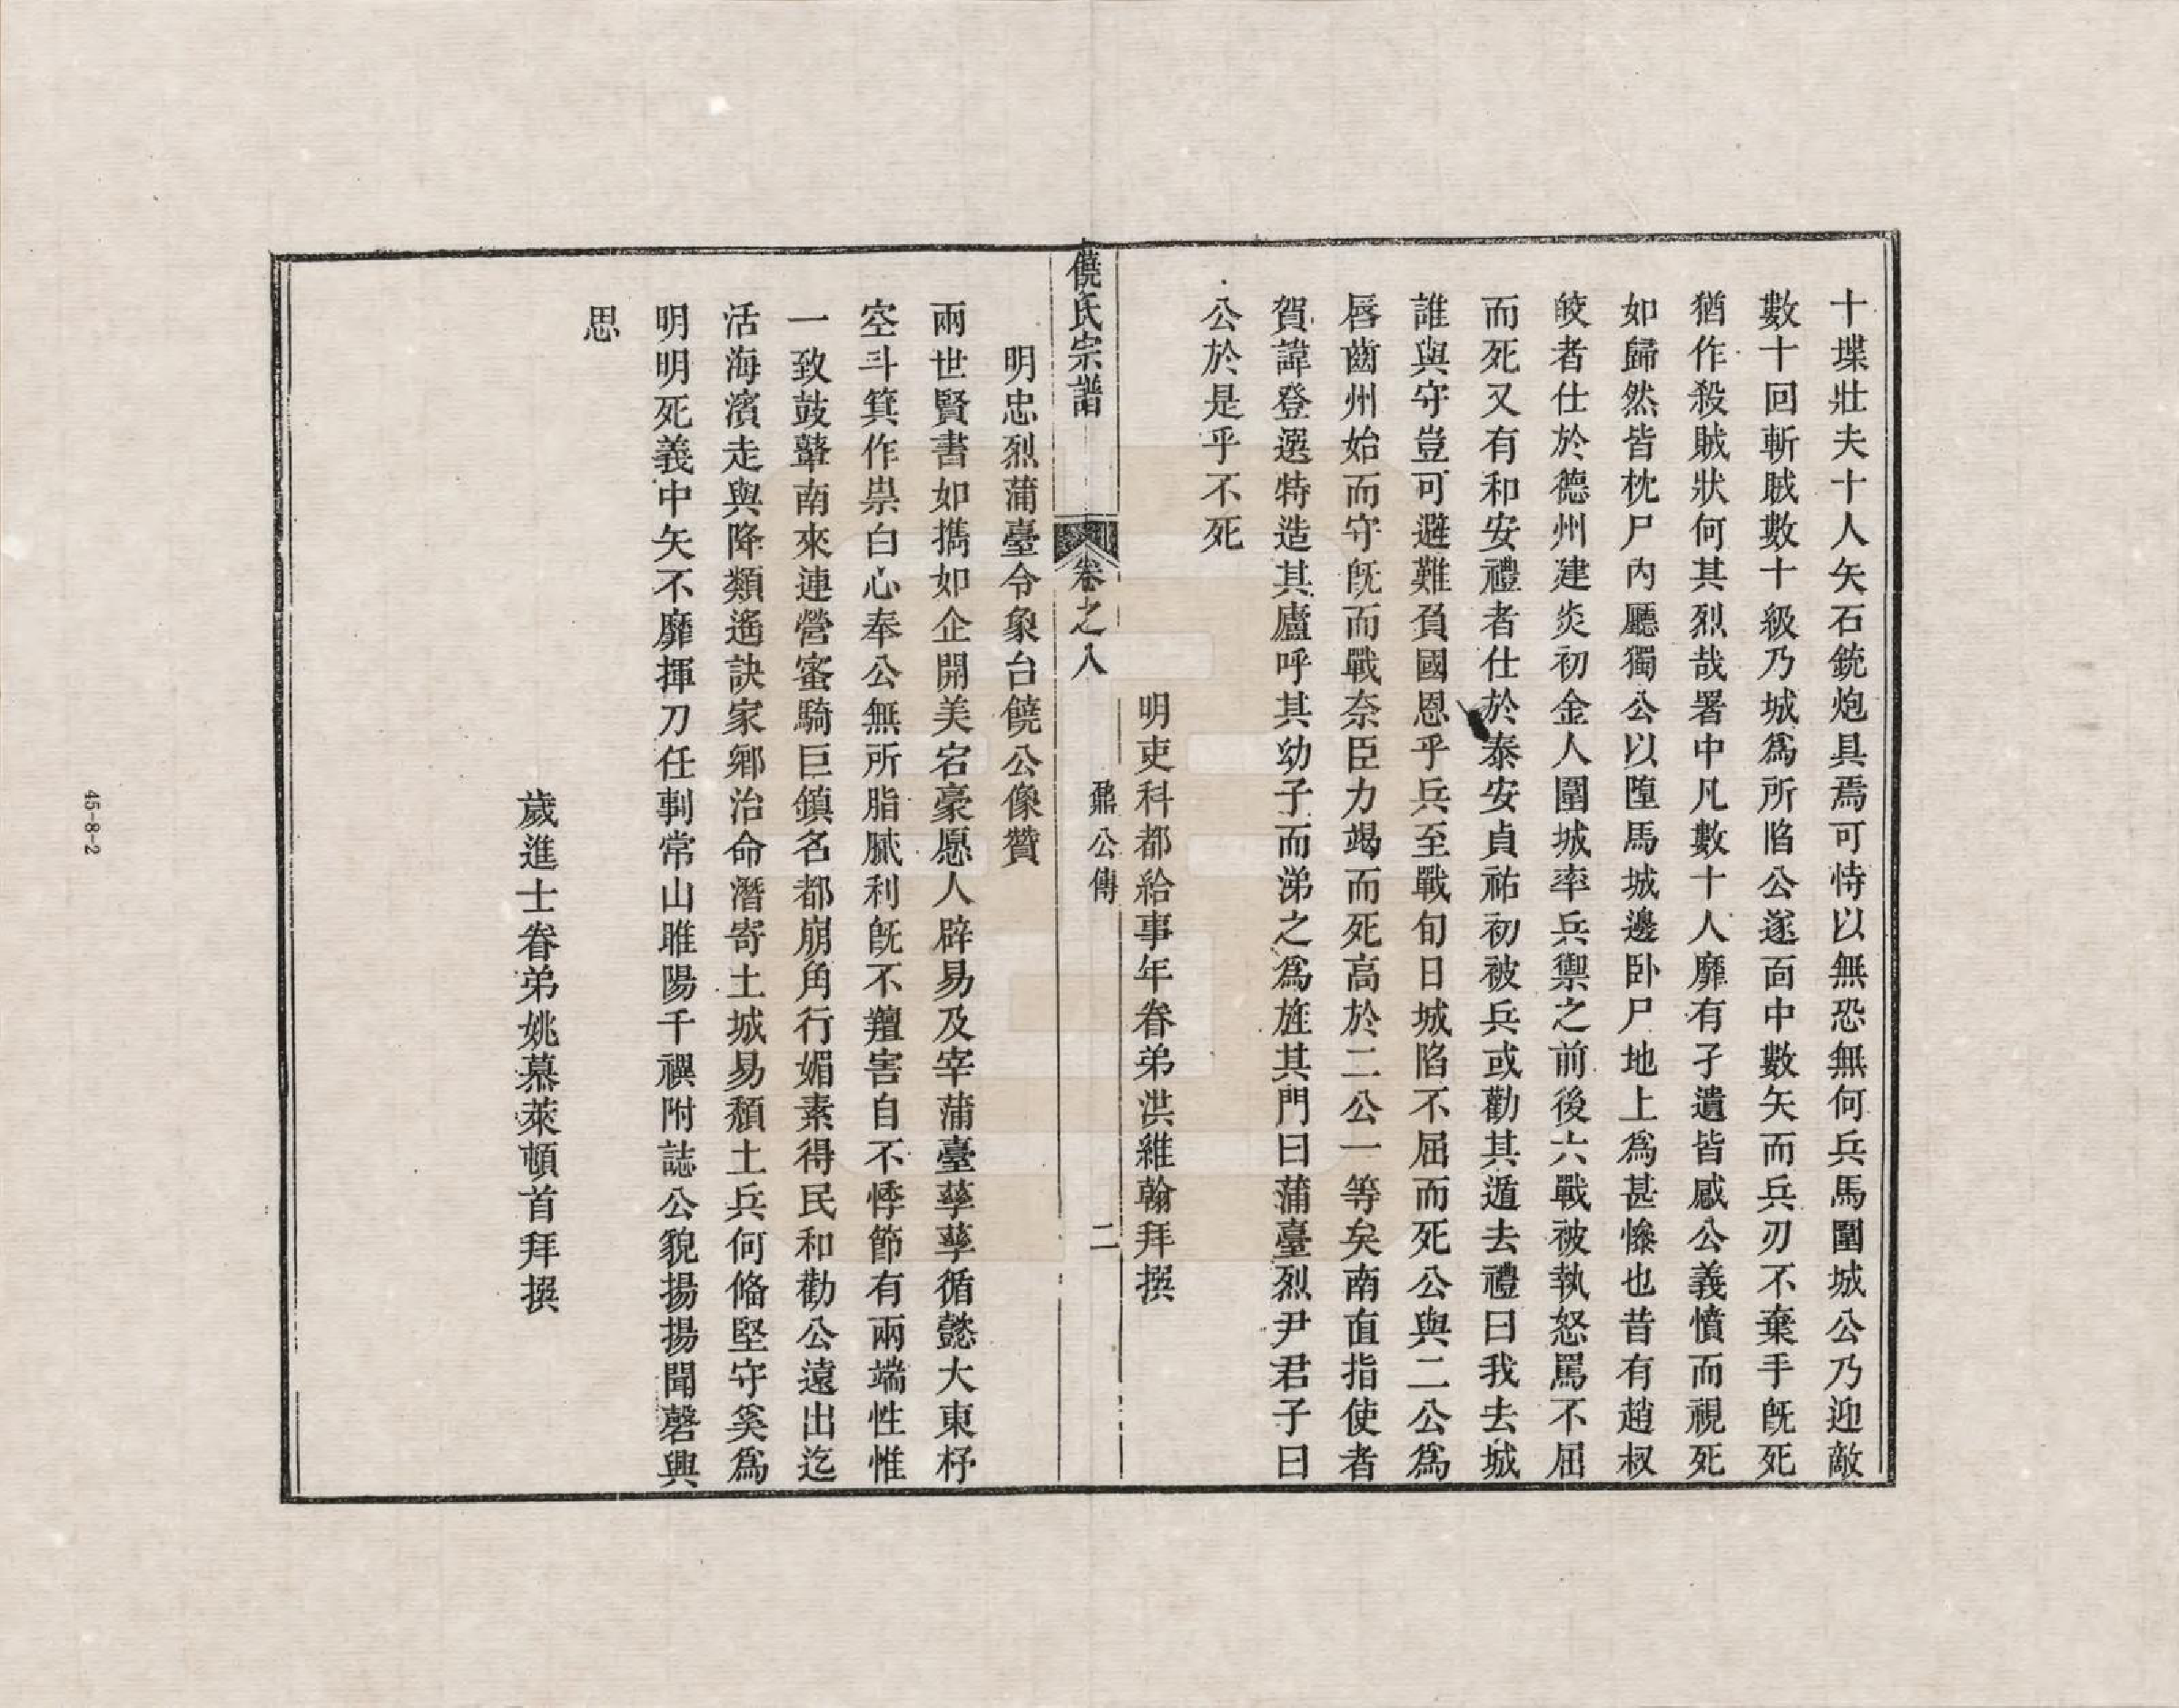 十堞壯夫十人矢石銃炮具焉可恃以無恐無何兵馬圍城公乃迎敵
數十回斬賊數十級乃城爲所陷公遂面中數矢而兵刃不棄手旣死
猶作殺賊狀何其烈哉署中凡數十人靡有孑遺皆感公義憤而視死
如歸然皆枕尸內廳獨公以墮馬城邊卧尸地上爲甚慘也昔有趙叔
皎者仕於德州建炎初金人圍城率兵禦之前後六戰被執怒駡不屈
而死又有和安禮者仕於泰安貞祐初被兵或勸其遁去禮曰我去城
誰與守豈可避難負國恩乎兵至戰旬日城陷不屈而死公與二公爲
唇齒州始而守旣而戰奈臣力竭而死高於二公一等矣南直指使者
賀諱登選特造其廬呼其幼子而涕之爲旌其門曰蒲臺烈尹君子曰
公於是乎不死
明吏科都給事年眷弟洪維翰拜撰
饒氏宗譜
卷之八
鼐公傳
二
明忠烈蒲臺令象台饒公像贊
兩世賢書如擕如企開美宕豪愿人辟易及宰蒲臺孳孳循懿大東杼
空斗箕作祟白心奉公無所脂膩利旣不羶害自不悸節有兩端性惟
一致鼓鼙南來連營蜜騎巨鎮名都崩角行媚素得民和勸公遠出迄
活海濱走與降類遙訣家鄉治命潛寄土城易頹土兵何脩堅守奚爲
明明死義中矢不靡揮刀任剚常山睢陽千禩附誌公貌揚揚聞磬興
思
歲進士眷弟姚慕萊頓首拜撰
45-8-2